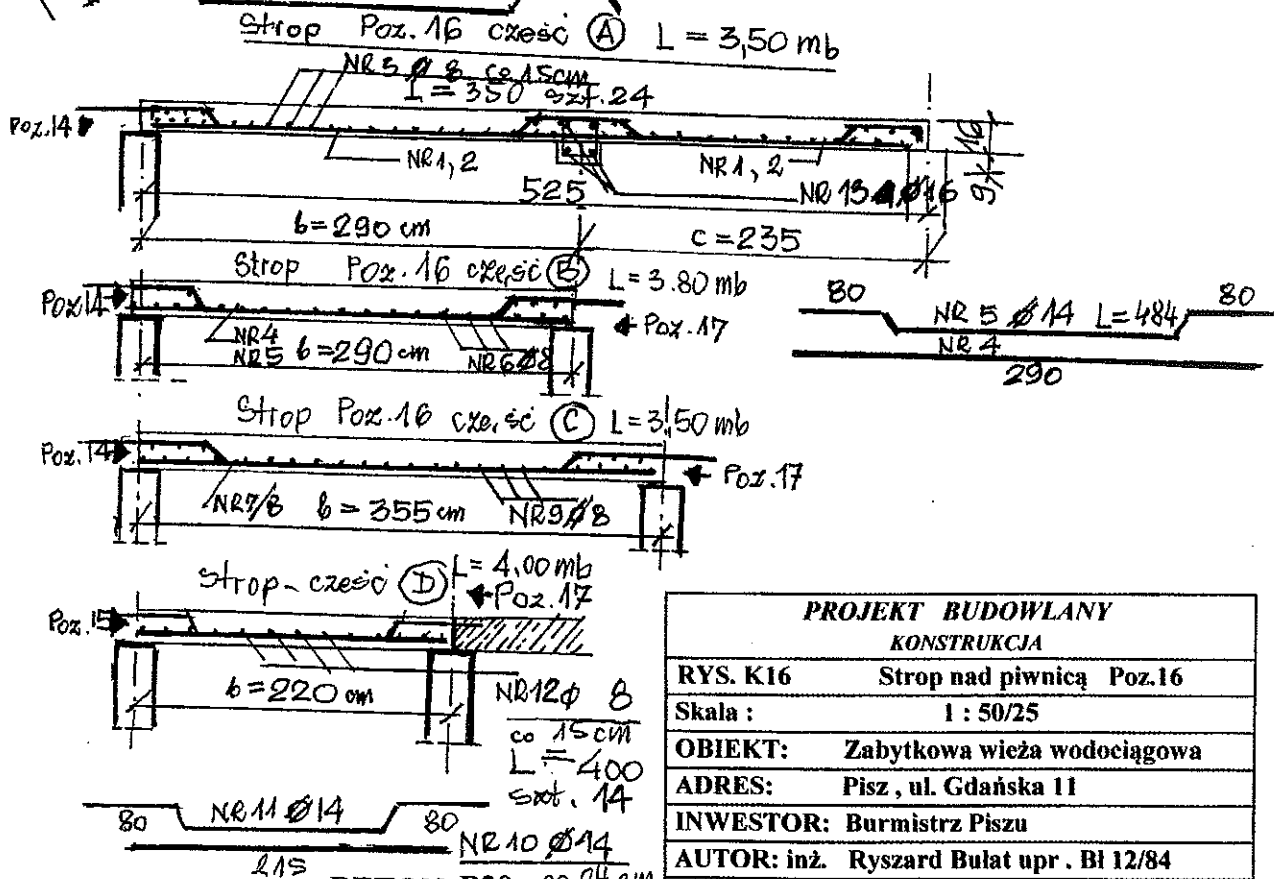 Strop Poz. 16 cześć (A) L = 3,50 mb
NR3 Ø 8 co 15cm
L = 350 szt. 24
Poz.14
NR1, 2
NR1, 2
525
NR 13 4 Ø16
16
9
b=290 cm
c=235
Strop Poz. 16 część (B) L= 3.80 mb
Poz.14
Poz.17
NR4
NR5 b=290 cm
NR6Ø8
80
NR 5 Ø14 L=484
80
NR 4
290
Strop Poz.16 cześć (C) L=3,50 mb
Poz.14
Poz.17
NR7/8 b = 355 cm
NR9Ø8
Strop- cześć (D) L= 4,00 mb
Poz.17
Poz.15
b=220 cm
NR12Ø 8
co 15cm
L = 400
szt. 14
80
NR11 Ø14
80
NR10 Ø14
215
PROJEKT BUDOWLANY
KONSTRUKCJA
RYS. K16 Strop nad piwnicą Poz.16
Skala : 1 : 50/25
OBIEKT: Zabytkowa wieża wodociągowa
ADRES: Pisz , ul. Gdańska 11
INWESTOR: Burmistrz Piszu
AUTOR: inż. Ryszard Bułat upr . Bł 12/84